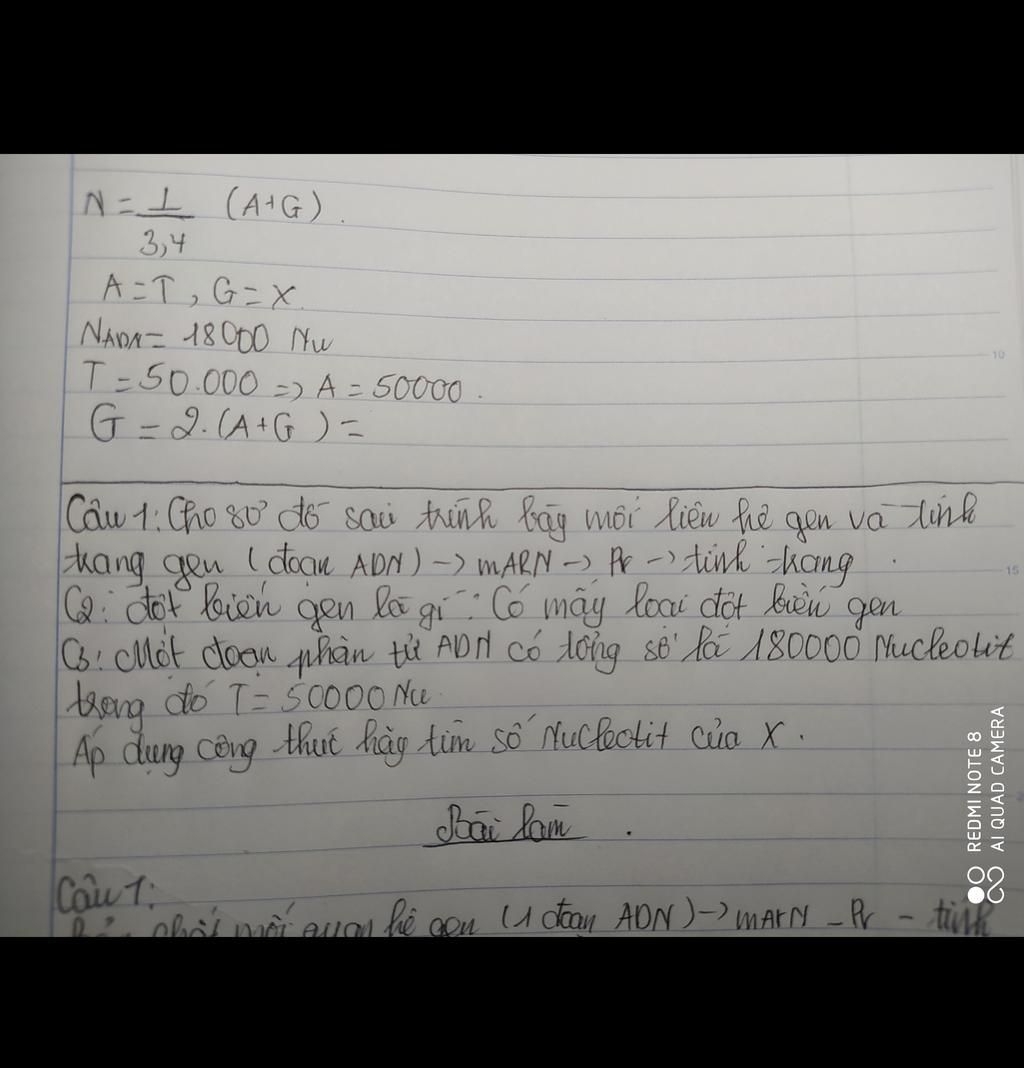 N = 1/3,4 (A+G).
A = T, G = X.
NADN = 18000 Nu
T = 50.000 => A = 50000.
G = 2.(A+G) =
10
Câu 1: Cho sơ đồ sau trình bày mối liên hệ gen và tính
trạng gen (đoạn ADN) -> mARN -> Pr -> tính trạng
15
C2: đột biến gen là gì? Có mấy loại đột biến gen
C3: Một đoạn phân tử ADN có tổng số là 180000 Nucleotit
trong đó T = 50000 Nu
Áp dụng công thức hãy tìm số Nucleotit của X.
Bài làm.
Câu 1:
chất mối quan hệ gen (1 đoạn ADN) -> mARN - Pr - tính
REDMI NOTE 8
AI QUAD CAMERA